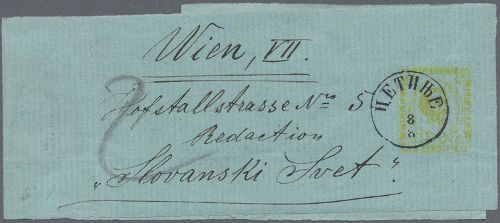 Wien, VII.
Hofstallstrasse No 5
Redaction
„Slovanski Svet".
ЦЕТИЊЕ
8
8